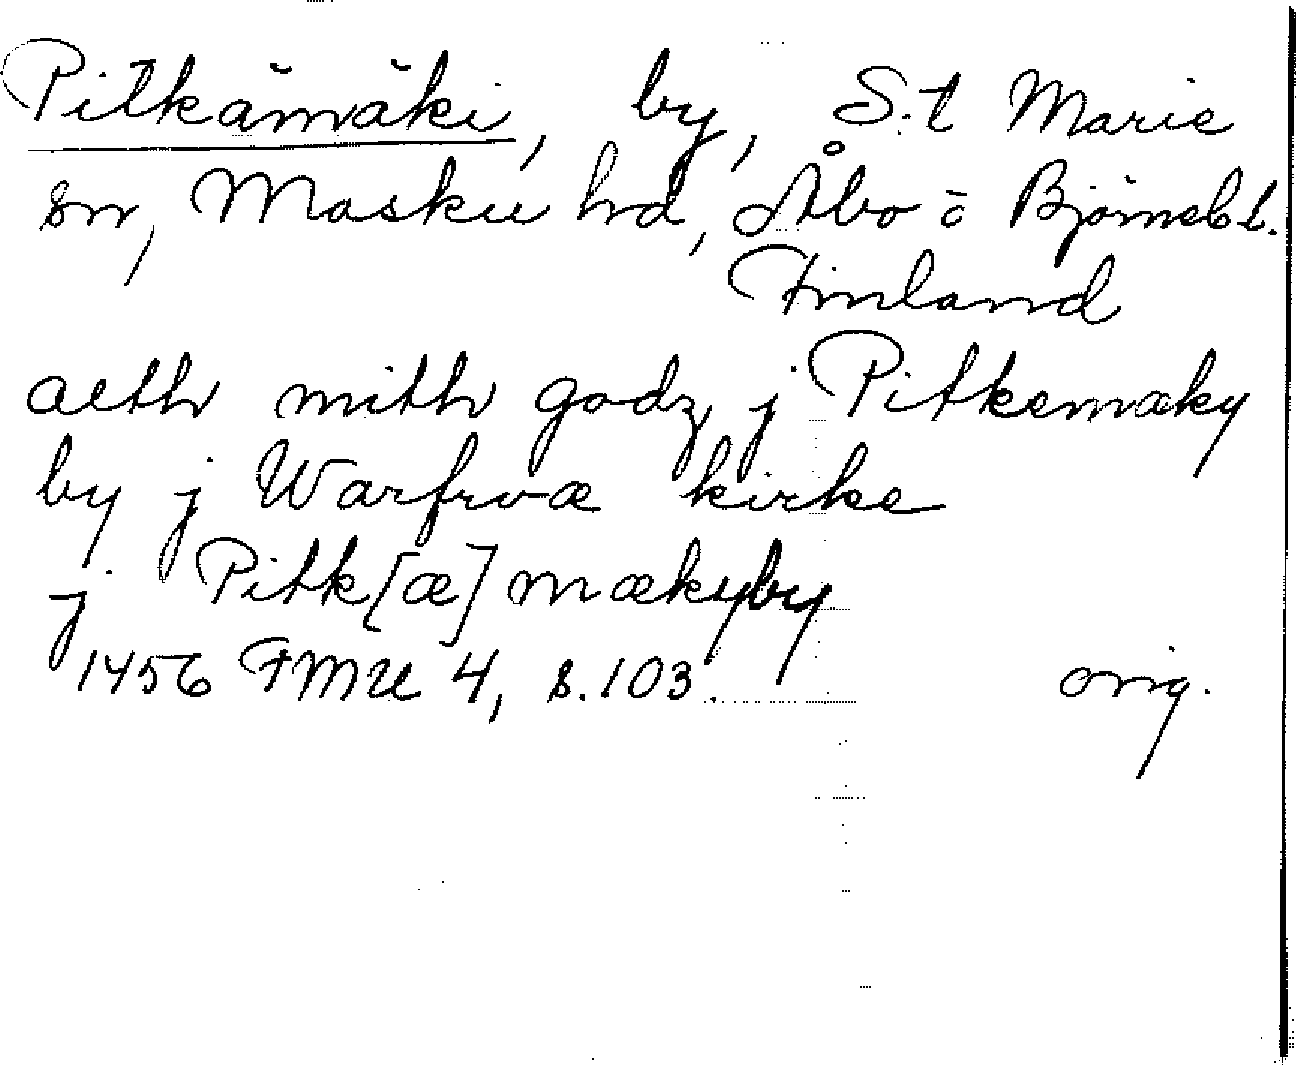 Pitkämäki, by, S:t Marie
sn, Masku hd, Åbo o Björnebl.
Finland
aeth mith godz j Pitkemæky
by j Warfrwæ kirke
j Pitk[æ]mækyby
1456 FMU 4, s.103. orig.